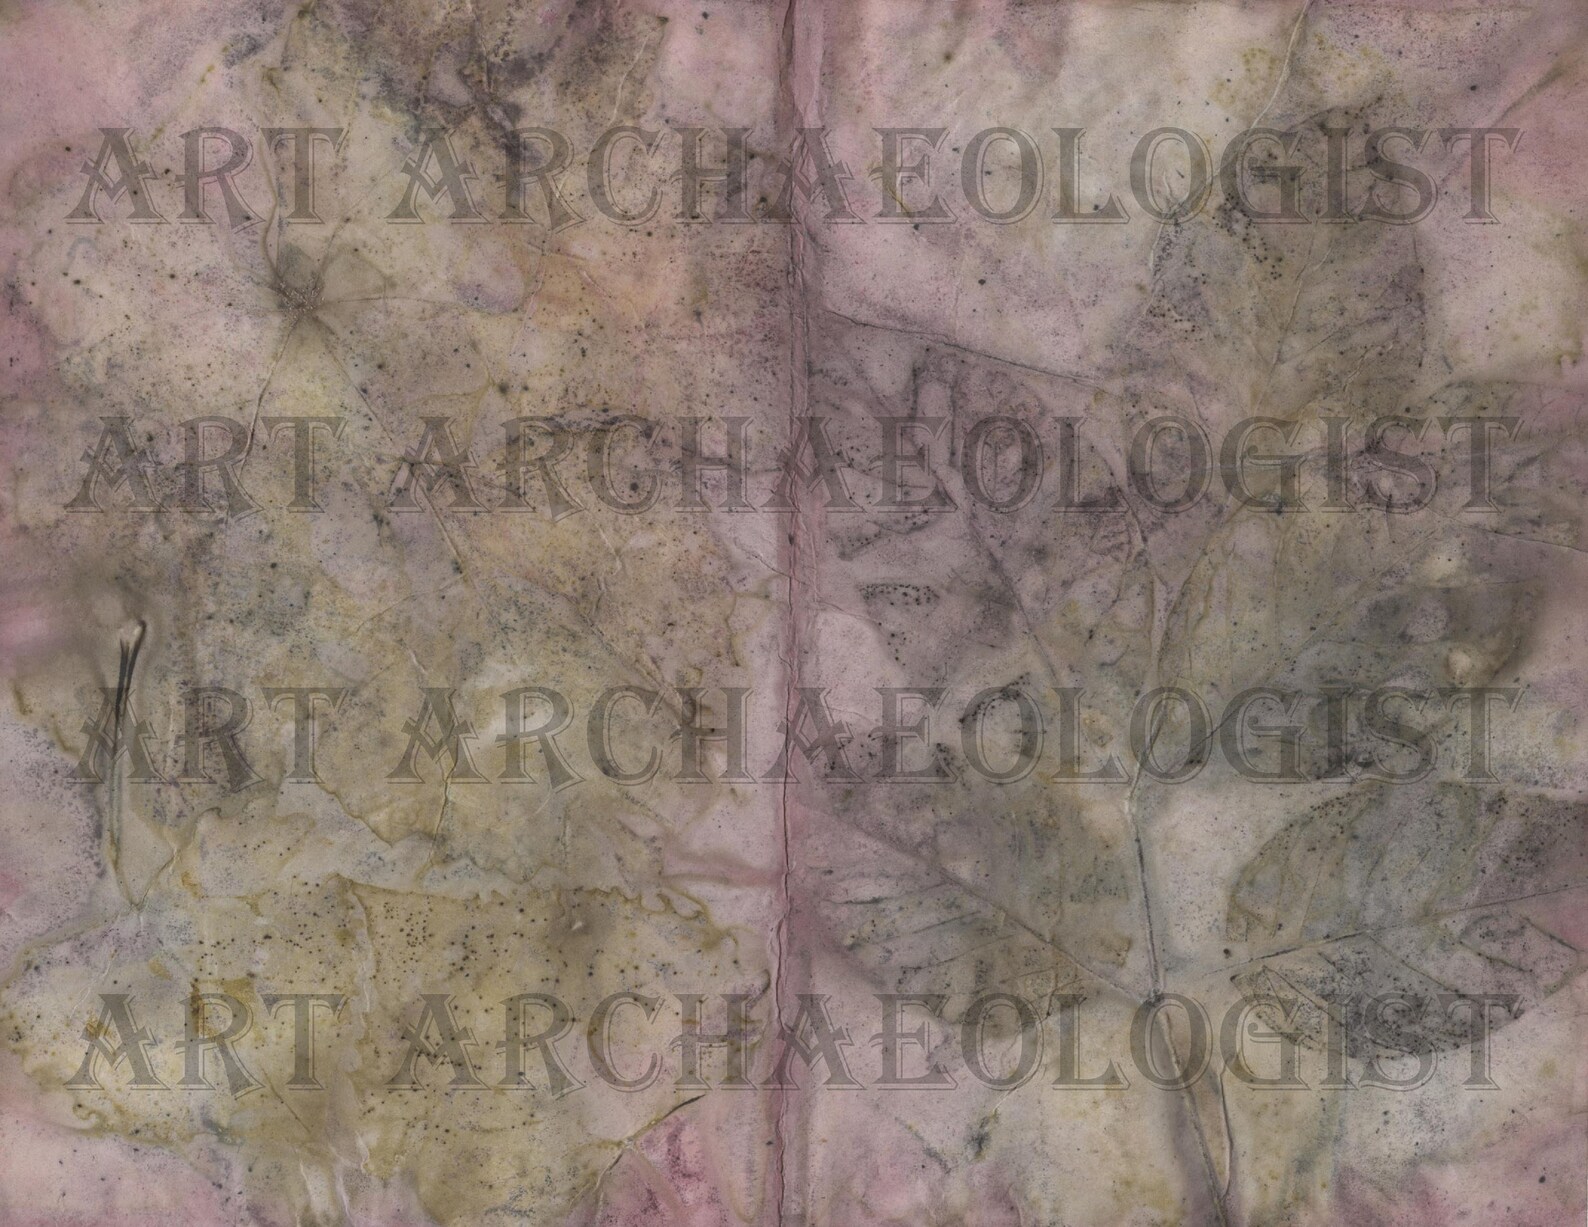 ART ARCHAEOLOGIST
ART ARCHAEOLOGIST
ART ARCHAEOLOGIST
ART ARCHAEOLOGIST